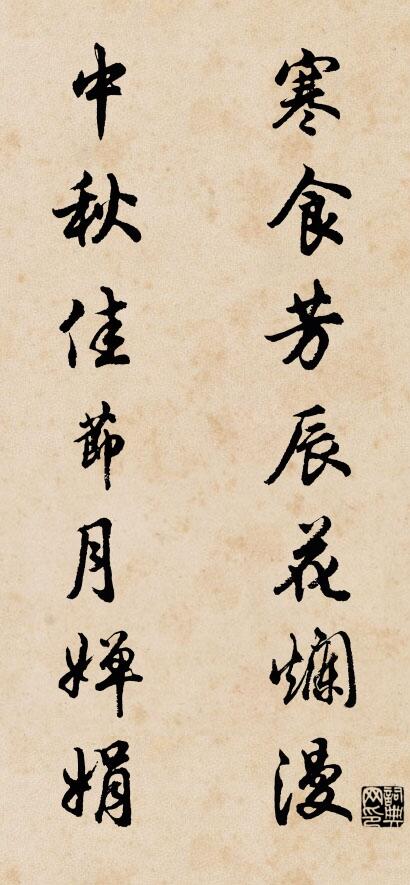 寒食芳辰花爛漫
中秋佳節月嬋娟
詞典網印